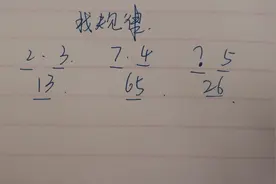 找规律.
2. 3. 7. 4 ? 5
13 65 26.